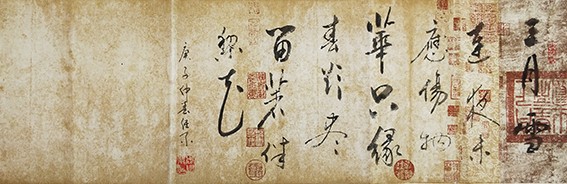 三月雪
連夜未
應傷物
華只緣
春欲盡
留著伴
梨花
庚子仲春